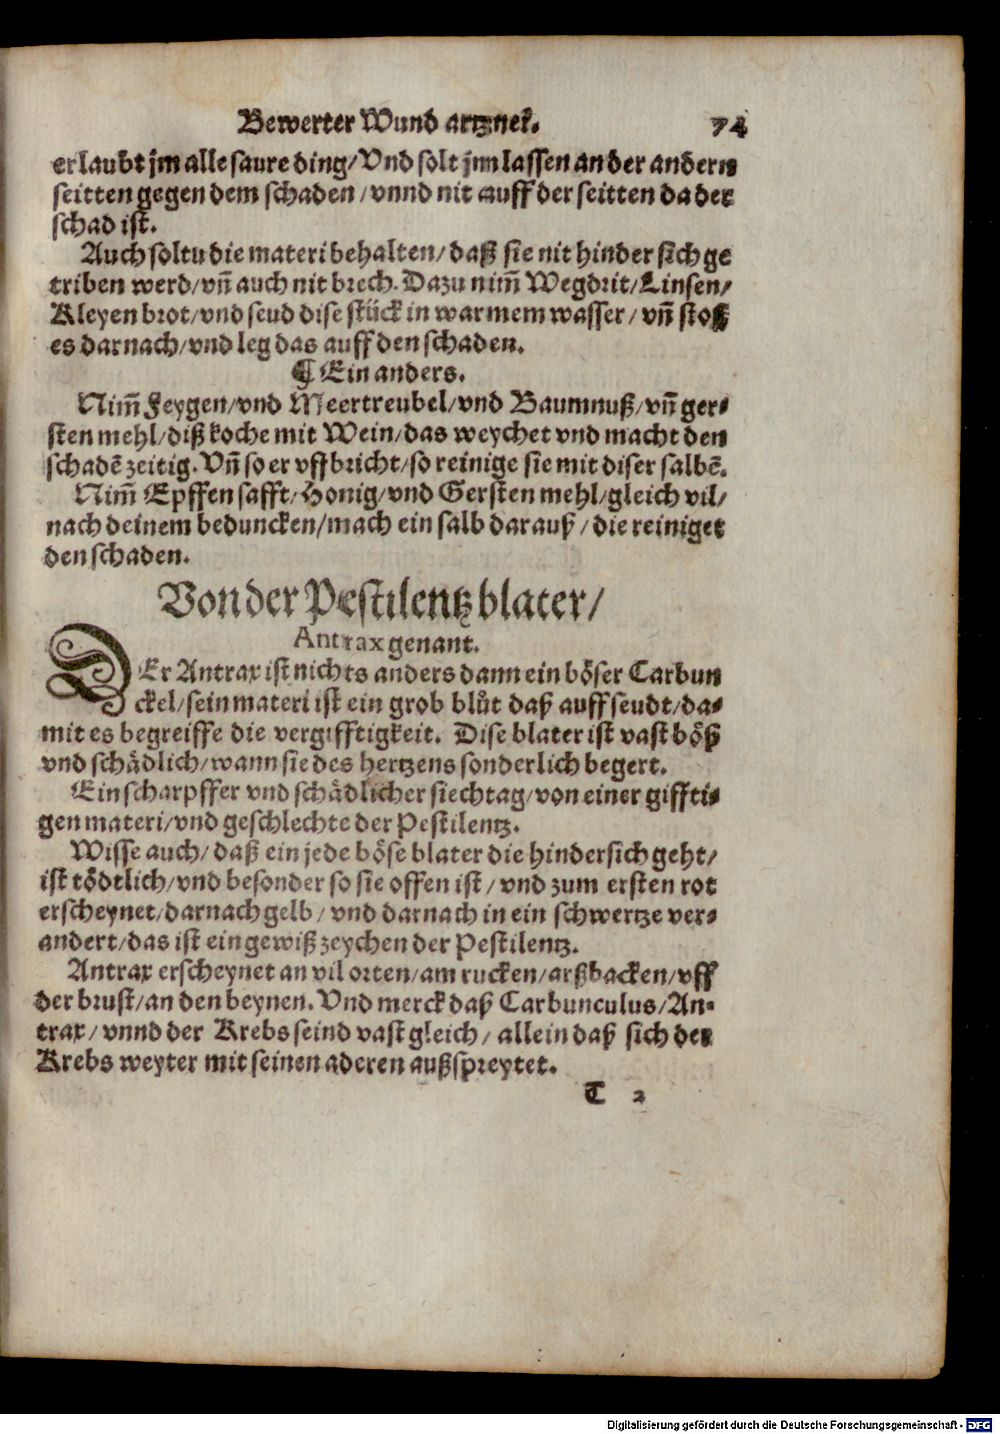 Bewerter Wund artznei. 74
erlaubt jm alle saure ding/Vnd solt jm lassen an der andern
seitten gegen dem schaden/vnnd nit auff der seitten da der
schad ist.
Auch soltu die materi behalten/daß sie nit hinder sich ge
triben werd/vñ auch nit brech. Dazu nim̃ Wegdrit/Linsen/
Kleyen brot/vnd seud dise stück in warmem wasser/vñ stoß
es darnach/vnd leg das auff den schaden.
¶ Ein anders.
Nim̃ Feygen/vnd Meertreubel/vnd Baumnuß/vñ ger⸗
sten mehl/diß koche mit Wein/das weychet vnd macht den
schadẽ zeitig. Vñ so er vffbricht/so reinige sie mit diser salbẽ.
Nim̃ Epffen safft/Honig/vnd Gersten mehl/gleich vil/
nach deinem beduncken/mach ein salb darauß/die reiniget
den schaden.
Von der Pestilentz blater/
Antrax genant.
DEr Antrax ist nichts anders dann ein böser Carbun
ckel/sein materi ist ein grob blůt daß auff seudt/da⸗
mit es begreiffe die vergifftigkeit. Dise blater ist vast böß
vnd schädlich/wann sie des hertzens sonderlich begert.
Ein scharpffer vnd schädlicher siechtag/von einer giffti⸗
gen materi/vnd geschlechte der Pestilentz.
Wisse auch/daß ein jede böse blater die hindersich geht/
ist tödtlich/vnd besonder so sie offen ist/vnd zum ersten rot
erscheynet/darnach gelb/vnd darnach in ein schwertze ver⸗
andert/das ist ein gewiß zeychen der Pestilentz.
Antrax erscheynet an vil orten/am rucken/arßbacken/vff
der brust/an den beynen. Vnd merck daß Carbunculus/An⸗
trax/vnnd der Krebs seind vast gleich/allein daß sich der
Krebs weyter mit seinen aderen außspreytet.
T 2
Digitalisierung gefördert durch die Deutsche Forschungsgemeinschaft - DFG